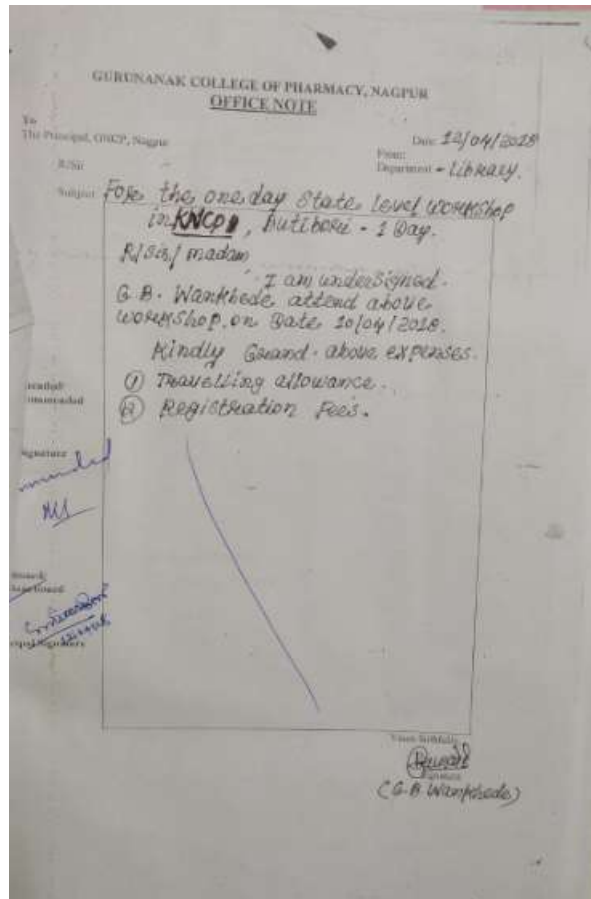 GURUNANAK COLLEGE OF PHARMACY, NAGPUR
OFFICE NOTE
To
The Principal, GNCP, Nagpur
Date: 12/04/2018
From:
Department - Library.
R/Sir
Subject For the one day State level workshop
in KNCP, Butibori - 1 Day.
R/Sir/madam
I am undersigned.
G. B. Wankhede attend above
workshop, on Date 10/04/2018.
Kindly Grand. above expenses.
① Travelling allowance.
② Registration Fees.
Signature
Yours faithfully
Signature
(G.B Wankhede)